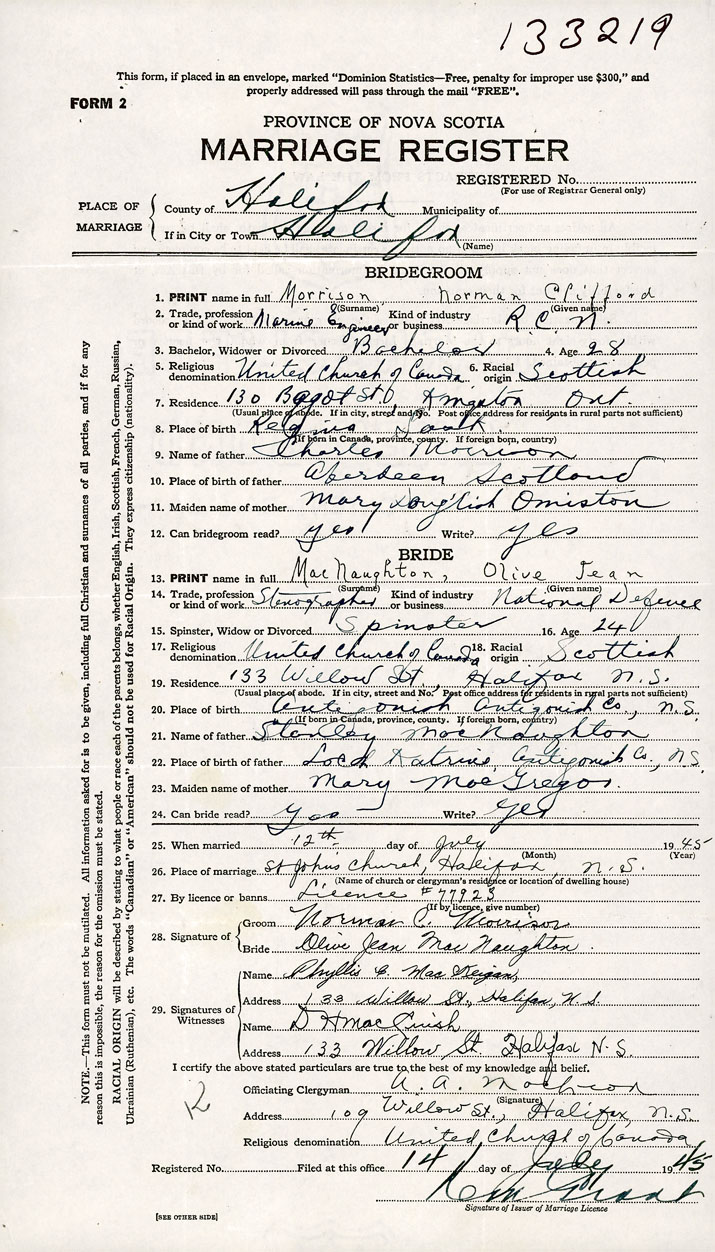 133219
This form, if placed in an envelope, marked "Dominion Statistics—Free, penalty for improper use $300," and
properly addressed will pass through the mail "FREE".
FORM 2
PROVINCE OF NOVA SCOTIA
MARRIAGE REGISTER
REGISTERED No.
(For use of Registrar General only)
PLACE OF MARRIAGE
County of Halifax Municipality of
If in City or Town Halifax
(Name)
BRIDEGROOM
1. PRINT name in full Morrison, Norman Clifford
(Surname) (Given name)
2. Trade, profession or kind of work Marine Engineer Kind of industry or business R. C. N.
3. Bachelor, Widower or Divorced Bachelor 4. Age 28
5. Religious denomination United Church of Canada 6. Racial origin Scottish
7. Residence 130 Bagot St., Kingston Ont.
(Usual place of abode. If in city, street and No. Post office address for residents in rural parts not sufficient)
8. Place of birth Regina Sask.
(If born in Canada, province, county. If foreign born, country)
9. Name of father Charles Morrison
10. Place of birth of father Aberdeen Scotland
11. Maiden name of mother Mary Omiston
12. Can bridegroom read? yes Write? yes
BRIDE
13. PRINT name in full MacNaughton, Olive Jean
(Surname) (Given name)
14. Trade, profession or kind of work Stenographer Kind of industry or business National Defence
15. Spinster, Widow or Divorced Spinster 16. Age 24
17. Religious denomination United Church of Canada 18. Racial origin Scottish
19. Residence 133 Willow St., Halifax N.S.
(Usual place of abode. If in city, street and No. Post office address for residents in rural parts not sufficient)
20. Place of birth Antigonish Antigonish Co., N.S.
(If born in Canada, province, county. If foreign born, country)
21. Name of father Stanley MacNaughton
22. Place of birth of father Loch Katrine, Antigonish Co., N.S.
23. Maiden name of mother Mary MacGregor
24. Can bride read? Yes Write? Yes
25. When married 12th day of July 1945
(Month) (Year)
26. Place of marriage St Johns Church, Halifax, N.S.
(Name of church or clergyman's residence or location of dwelling house)
27. By licence or banns Licence #77923
(If by licence, give number)
28. Signature of
Groom Norman C. Morrison
Bride Olive Jean MacNaughton.
29. Signatures of Witnesses
Name Phyllis
Address 133 Willow St., Halifax, N.S.
Name D H
Address 133 Willow St. Halifax N.S.
I certify the above stated particulars are true to the best of my knowledge and belief.
Officiating Clergyman A. A.
(Signature)
Address 109 Willow St., Halifax, N.S.
Religious denomination United Church of Canada
Registered No. Filed at this office 14 day of July 1945
Signature of Issuer of Marriage Licence
[SEE OTHER SIDE]
NOTE.—This form must not be mutilated. All information asked for is to be given, including full Christian and surnames of all parties, and if for any
reason this is impossible, the reason for the omission must be stated.
RACIAL ORIGIN will be described by stating to what people or race each of the parents belongs, whether English, Irish, Scottish, French, German, Russian,
Ukrainian (Ruthenian), etc. The words "Canadian" or "American" should not be used for Racial Origin. They express citizenship (nationality).